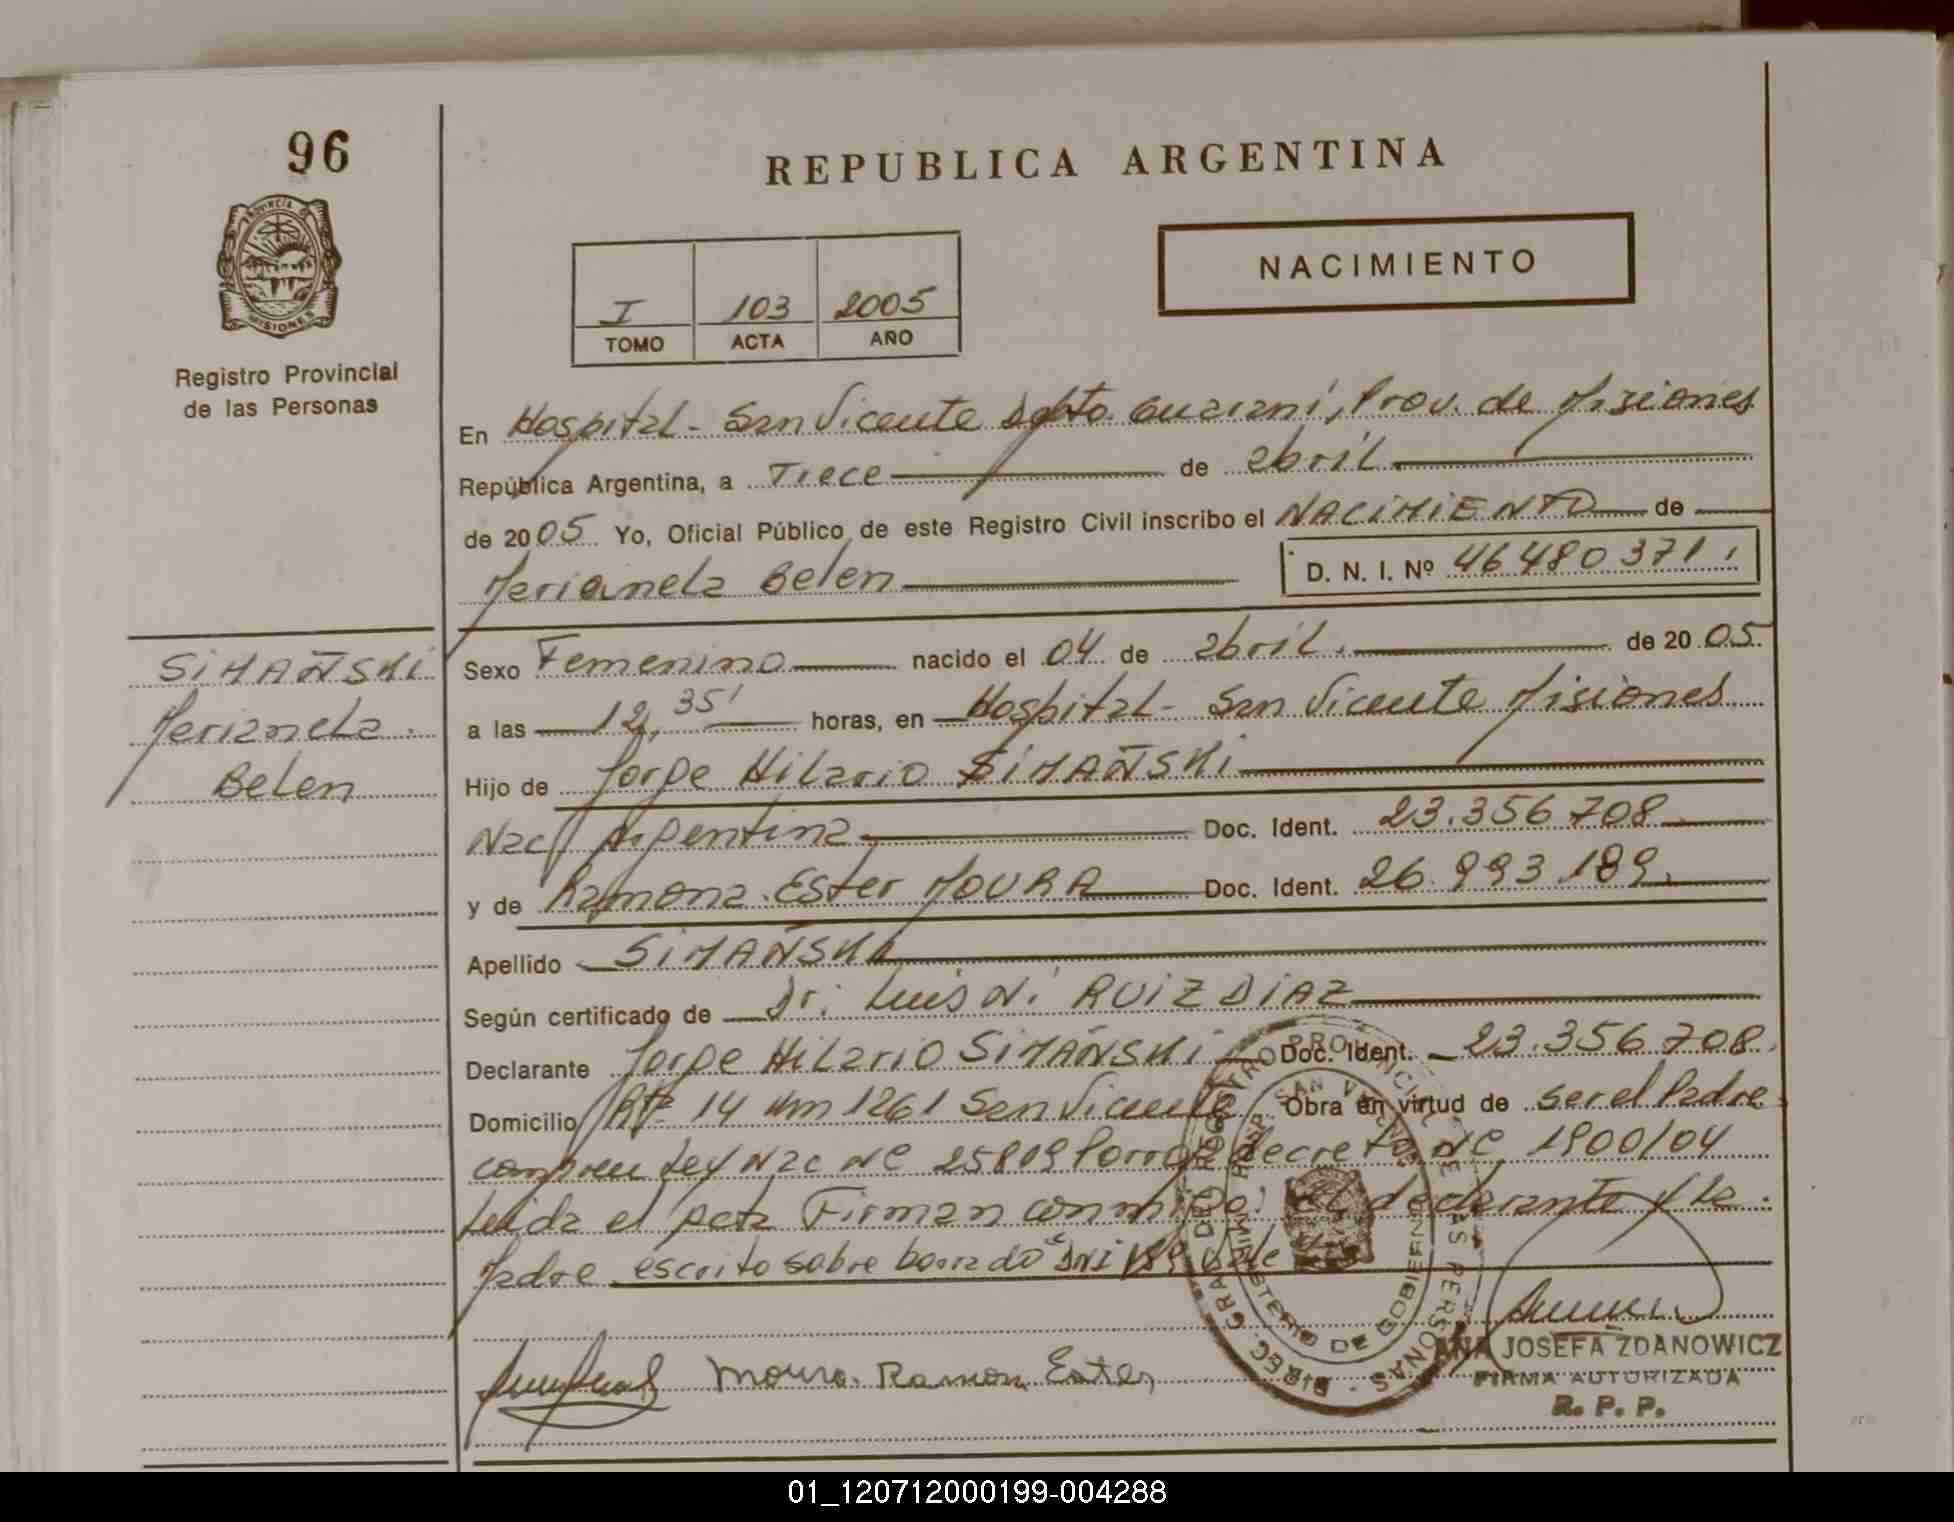 96
PROVINCIA DE
MISIONES
Registro Provincial
de las Personas
REPUBLICA ARGENTINA
NACIMIENTO
I 103 2005
TOMO ACTA AÑO
En Hospital - San Vicente Dpto. Guarani, Prov. de Misiones
República Argentina, a Trece de abril
de 2005 Yo, Oficial Público de este Registro Civil inscribo el NACIMIENTO de
Marianela Belen D. N. I. Nº 46480371
SIMAÑSKI
Marianela
Belen
Sexo Femenino nacido el 04 de abril. de 2005.
a las 12,35' horas, en Hospital - San Vicente Misiones
Hijo de Jorge Hilario SIMAÑSKI
Nac/ Argentina Doc. Ident. 23.356.708
y de Ramona Ester MOURA Doc. Ident. 26.993.189
Apellido SIMAÑSKI
Según certificado de Dr: Luis N: RUIZ DIAZ
Declarante Jorge Hilario SIMAÑSKI Doc. Ident. 23.356.708
Domicilio Rta 14 Km 1261 San Vicente Obra en virtud de ser el Padre
Ley Nac Nº 25819 Porrog decreto Nº 1900/04
Leida el acta Firman conmigo: El declarante y la
Madre escrito sobre borrado "DNI 189 Vale
Moura Ramon Ester
REGISTRO PROVINCIAL DE LAS PERSONAS
MINISTERIO DE GOBIERNO
ANA JOSEFA ZDANOWICZ
FIRMA AUTORIZADA
R. P. P.
01_120712000199-004288